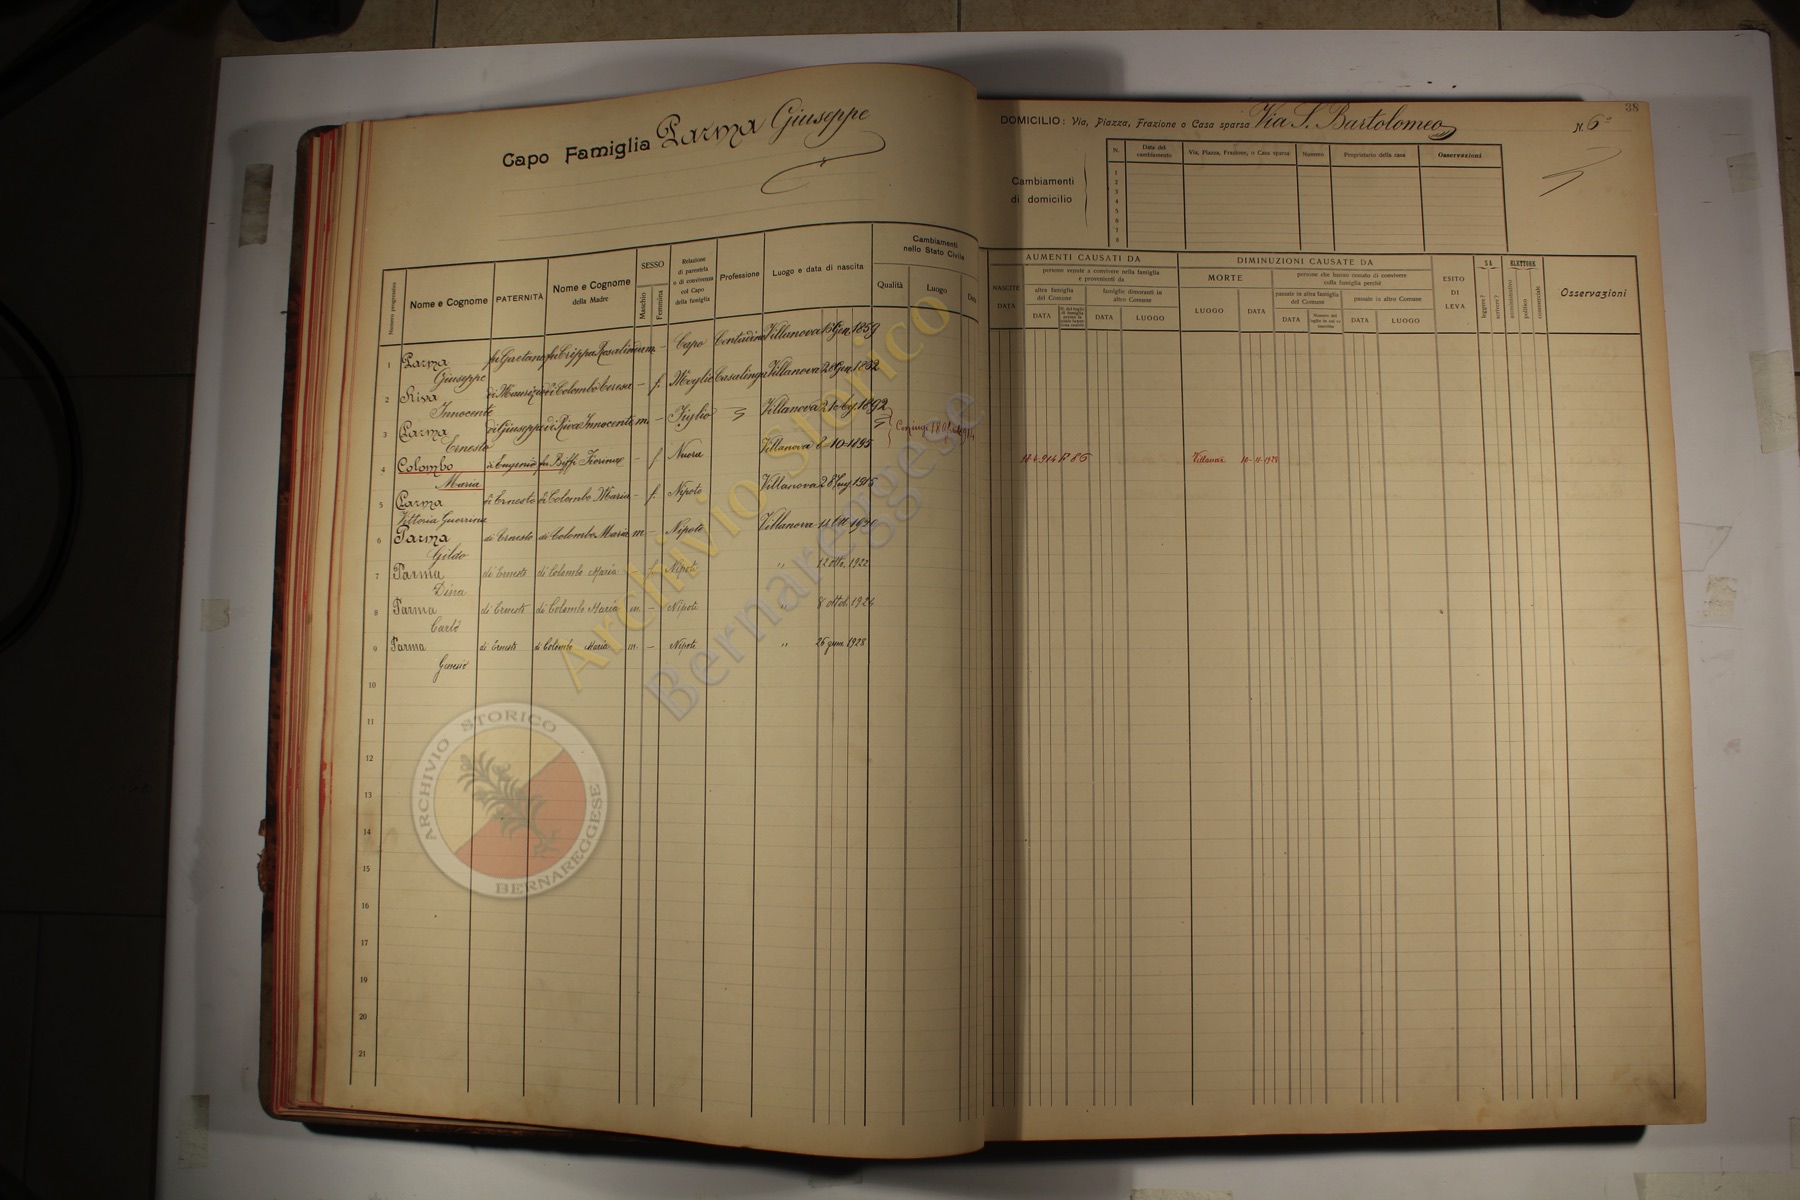 38
Capo Famiglia Parma Giuseppe
DOMICILIO: Via, Piazza, Frazione o Casa sparsa Via S. Bartolomeo N. 6
Cambiamenti di domicilio
N. Data del cambiamento Via, Piazza, Frazione, o Casa sparsa Numero Proprietario della casa Osservazioni
1
2
3
4
5
6
7
8
Numero progressivo Nome e Cognome PATERNITÀ Nome e Cognome della Madre SESSO Maschio Femmina Relazione di parentela o di convivenza col Capo della famiglia Professione Luogo e data di nascita Cambiamenti nello Stato Civile Qualità Luogo Data
NASCITE DATA AUMENTI CAUSATI DA persone venute a convivere nella famiglia e provenienti da altra famiglia del Comune DATA famiglie dimoranti in altro Comune DATA LUOGO
DIMINUZIONI CAUSATE DA MORTE LUOGO DATA persone che hanno cessato di convivere colla famiglia perchè passate in altra famiglia del Comune DATA passate in altro Comune DATA LUOGO
ESITO DI LEVA SA leggere? scrivere? ELETTORE amministrativo politico commerciale Osservazioni
1 Parma Giuseppe fu Gaetano fu Crippa Rosalinda m. - Capo Contadino Villanova 15 Gen. 1859
2 Riva Innocente di Maurizio di Colombo Teresa - f. Moglie Casalinga Villanova 28 Gen. 1862
3 Parma Ernesto di Giuseppe di Riva Innocente m. - Figlio Villanova 1892
4 Colombo Maria di Eugenio fu Biffi Fiorina - f Nuora Villanova 2-10-1895 Villanova 10-11-1928
5 Parma Vittoria Guerrina di Ernesto di Colombo Maria - f. Nipote Villanova 28 Lug. 1915
6 Parma Gildo di Ernesto di Colombo Maria m - Nipote Villanova 14 Ott. 1920
7 Parma Dina di Ernesto di Colombo Maria - Nipote " 12 1922
8 Parma Carlo di Ernesto di Colombo Maria m. - Nipote " 8 ottob. 1924
9 Parma di Ernesto di Colombo Maria m. - Nipote " 26 1928
10
11
12
13
14
15
16
17
18
19
20
21
Archivio Storico
Bernareggese
ARCHIVIO STORICO
BERNAREGGESE